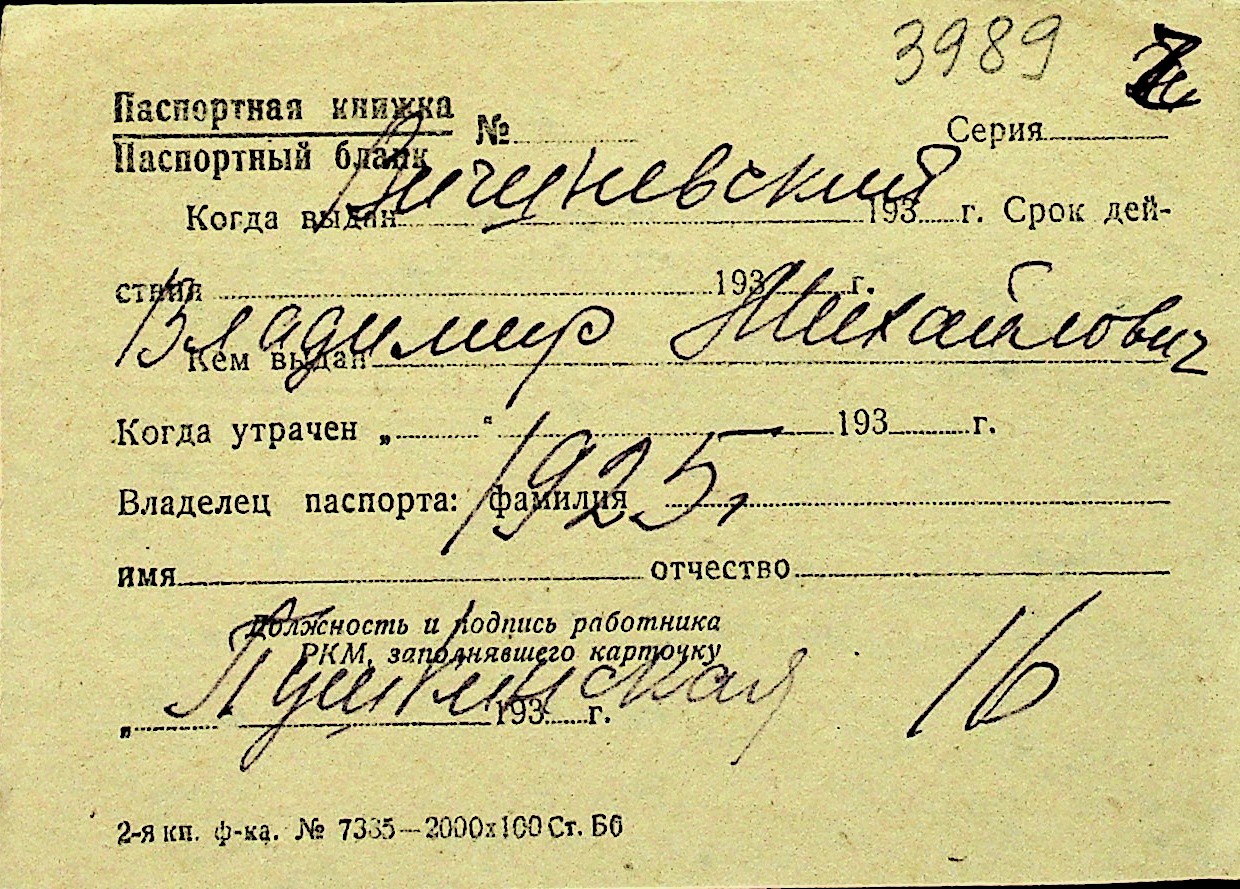 3989
Паспортная книжка
Паспортный бланк № Серия
Вичуневский
Когда выдан 193 г. Срок дей-
ствия 193 г.
Владимир Михайлович
Кем выдан
Когда утрачен „ “ 193 г.
1925,
Владелец паспорта: фамилия
имя отчество
Должность и подпись работника
РКМ, заполнявшего карточку
Пушкинская 16
„ 193 г.
2-я кп. ф-ка. № 7335—2000х100 Ст. Бб